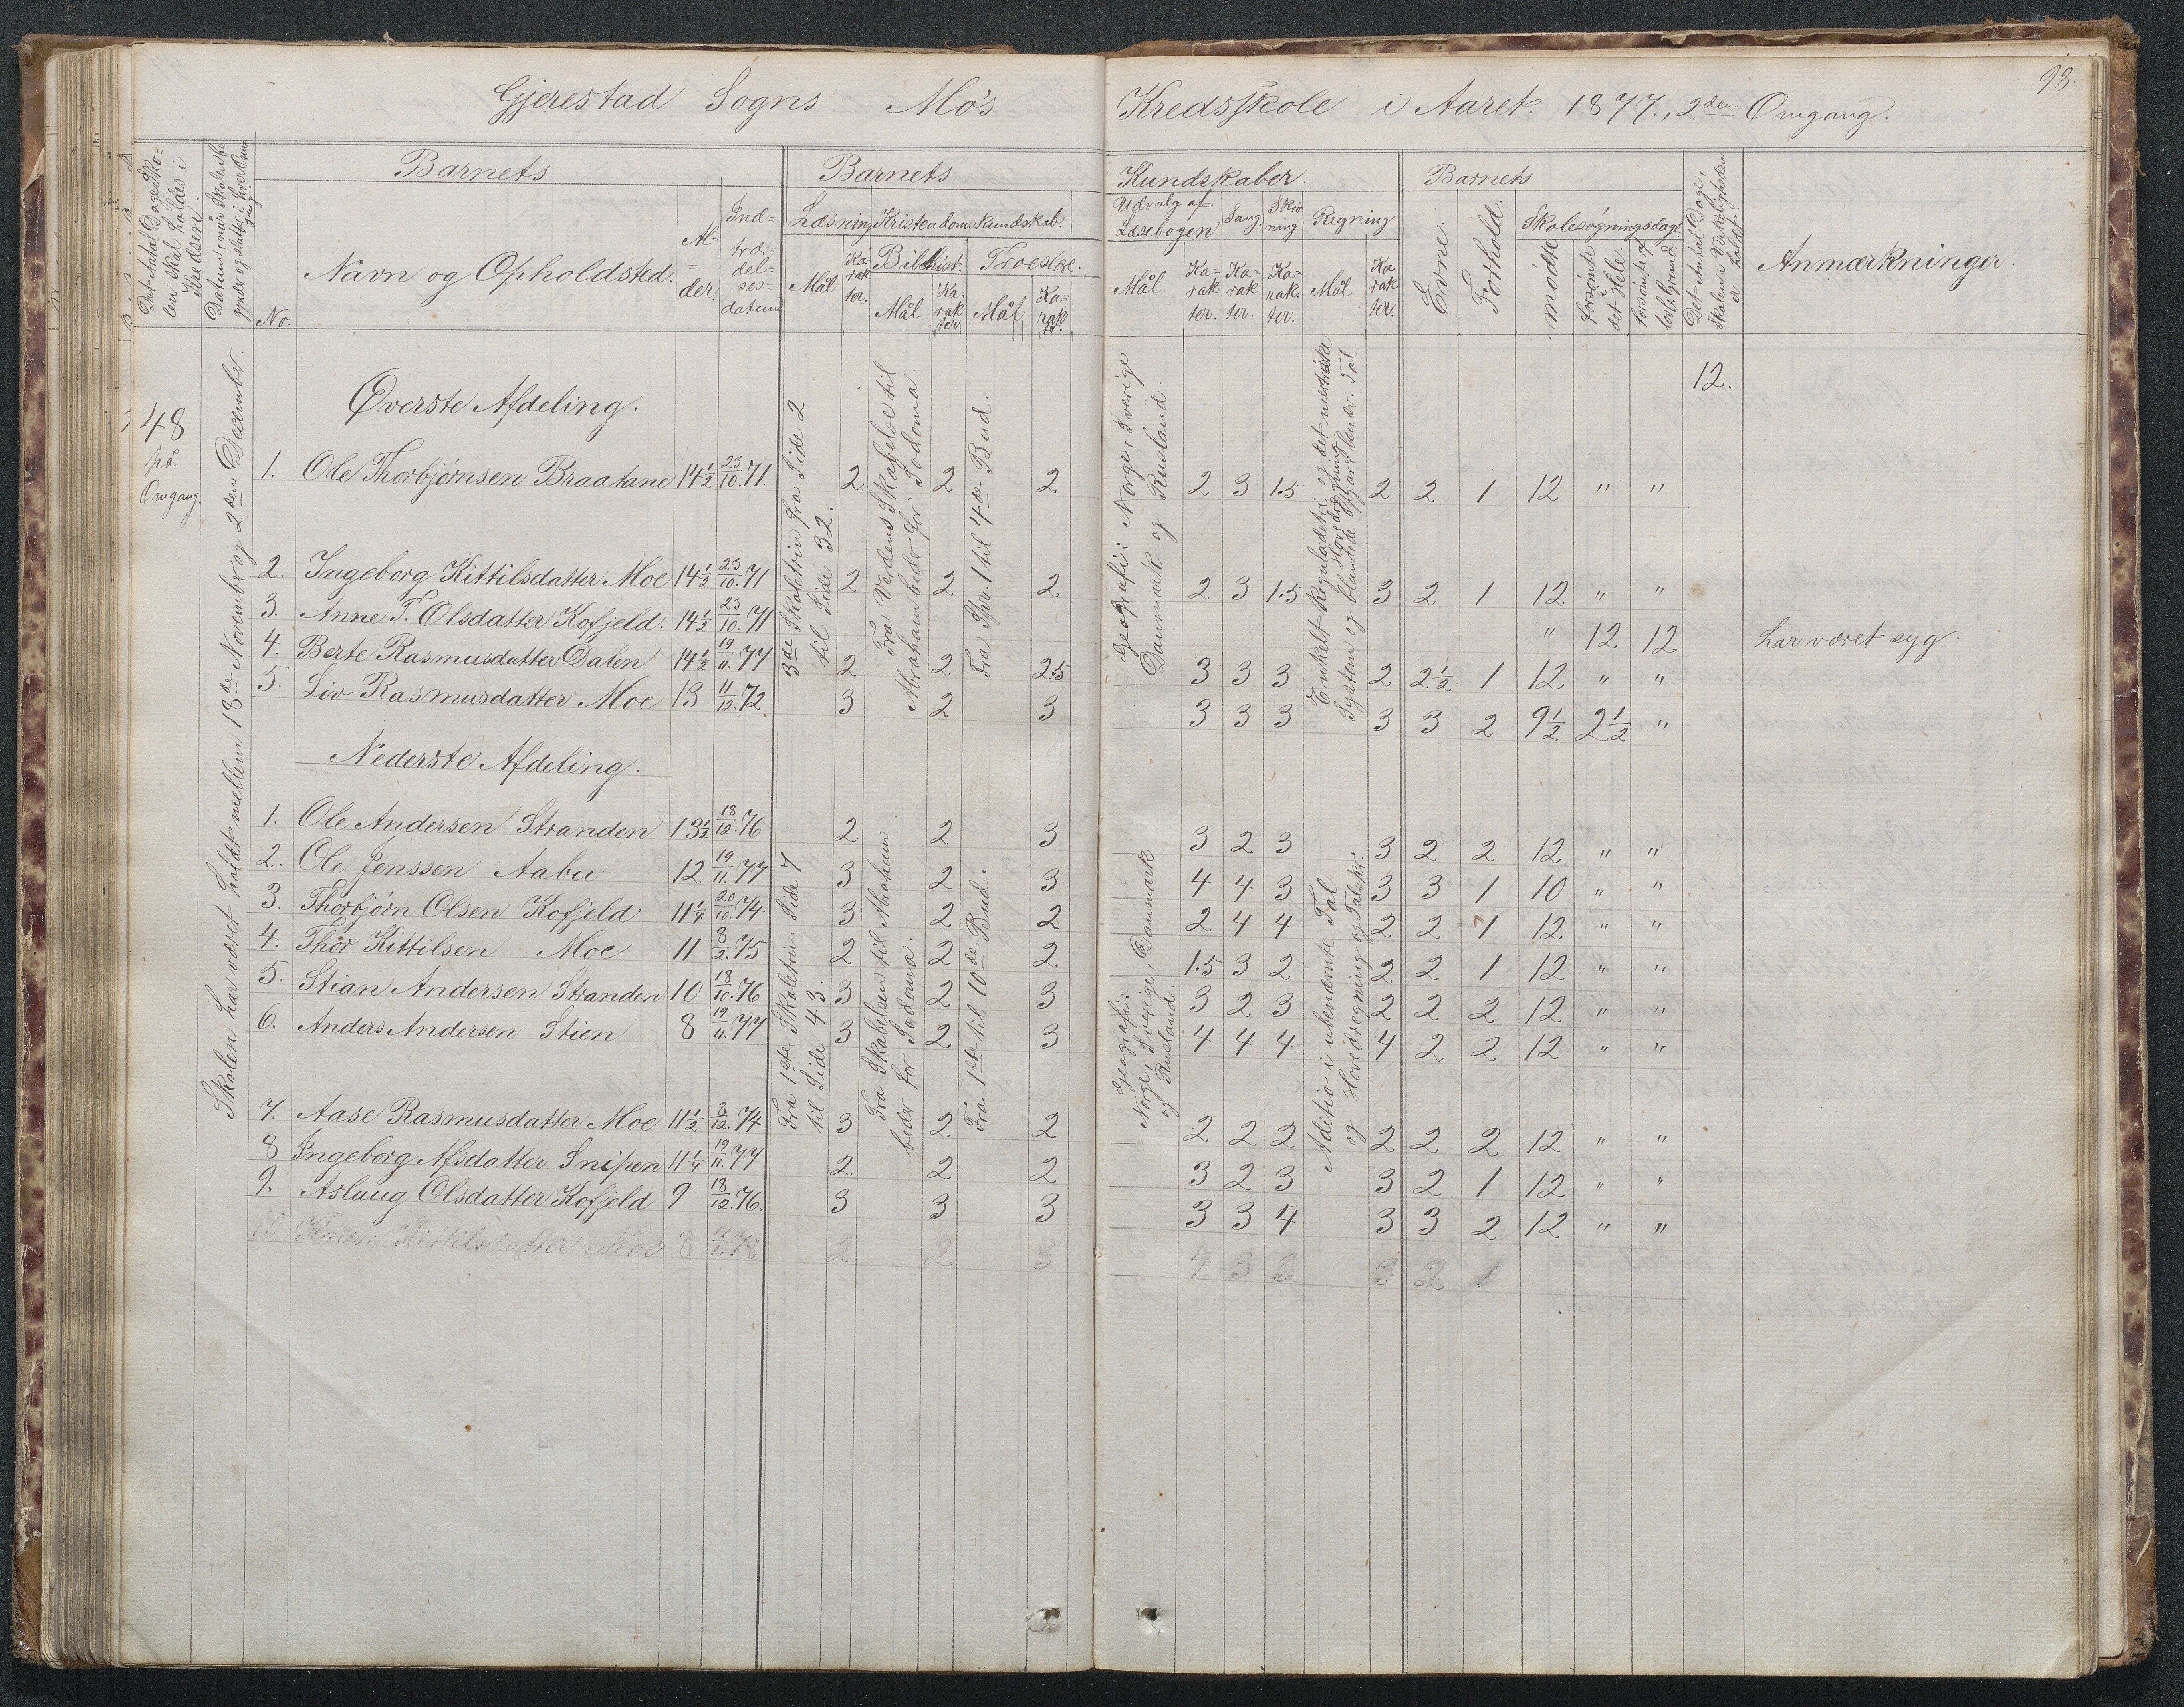 93.
Gjerestad Sogns Mo's Kredsskole i Aaret 1877., 2den Omgang.
Det Antal Dage Skolen skal holdes i Kredsen.
Datum, når Skolen begynder og slutter i hver Omgang
Barnets
No.
Navn og Opholdsted.
Alder.
Indtrædelsesdatum
Barnets
Læsning
Mål
Karakter.
Kristendomskundskab.
Bibelhist.
Mål
Karakter
Troeslære.
Mål
Karakter.
Kundskaber.
Udvalg af Læsebogen
Mål
Karakter.
Sang.
Karakter.
Skrivning
Karakter.
Regning
Mål
Karakter.
Barnets
Evne.
Forhold.
Skolesøgningsdage.
mødte
forsømte i det Hele.
forsømte af lovl. Grund.
Det Antal Dage, Skolen i Virkeligheden er holdt.
Anmærkninger.
48 på Omgang.
Skolen har været holdt mellem 18de November og 2den December.
12.
Øverste Afdeling.
3de Skoletrin fra Side 2 til Side 32.
Fra Verdens Skabelse til Abraham beder for Sodoma.
Fra Spv. 1 til 4de Bud.
Geografi: Norge, Sverige Danmark og Rusland.
Enkelt Reguladetri og det metriske System og blandede
1. Ole Thorbjørnsen Braatane 14½ 23/10.71. 2. 2 2 2 3 1.5 2 2 1 12 " "
2. Ingeborg Kittilsdatter Moe 14½ 23/10.71 2 2 2 2 3 1.5 3 2 1 12 " "
3. Anne T. Olsdatter Kofjeld. 14½ 23/10.71 " 12 12 har været syg.
4. Berte Rasmusdatter Dalen 14½ 19/11.77 2 2 2.5 3 3 3 2 2½ 1 12 " "
5. Liv Rasmusdatter Moe 13 11/12.72 3 2 3 3 3 3 3 3 2 9½ 2½ "
Nederste Afdeling.
Fra 1ste Skoletrin Side 7 til Side 43.
Fra Skabelsen til Abraham beder for Sodoma.
Fra 1ste til 10de Bud.
Geografi: Norge, Sverige, Danmark og Rusland.
Aditio i ubenævnte Tal og Hovedregning og Talskr.
1. Ole Andersen Stranden 13½ 18/12.76 2 2 3 3 2 3 3 2 2 12 " "
2. Ole Jenssen Aabu 12 19/11.77 3 2 3 4 4 3 3 3 1 10 " "
3. Thorbjørn Olsen Kofjeld 11¼ 20/10.74 3 2 2 2 4 4 2 2 1 12 " "
4. Thor Kittilsen Moe 11 8/2.75 2 2 2 1.5 3 2 2 2 1 12 " "
5. Stian Andersen Stranden 10 18/10.76 3 2 3 3 2 3 2 2 2 12 " "
6. Anders Andersen Stien 8 19/11.77 3 2 3 4 4 4 4 2 2 12 " "
7. Aase Rasmusdatter Moe 11½ 3/12.74 3 2 2 2 2 2 2 2 2 12 " "
8 Ingeborg Afsdatter Snipen 11¼ 19/11.77 2 2 2 3 2 3 3 2 1 12 " "
9. Aslaug Olsdatter Kofjeld 9 18/12.76. 3 3 3 3 3 4 3 3 2 12 " "
Karen Kittilsdatter Moe 8 2 2 3 4 3 3 3 2 1